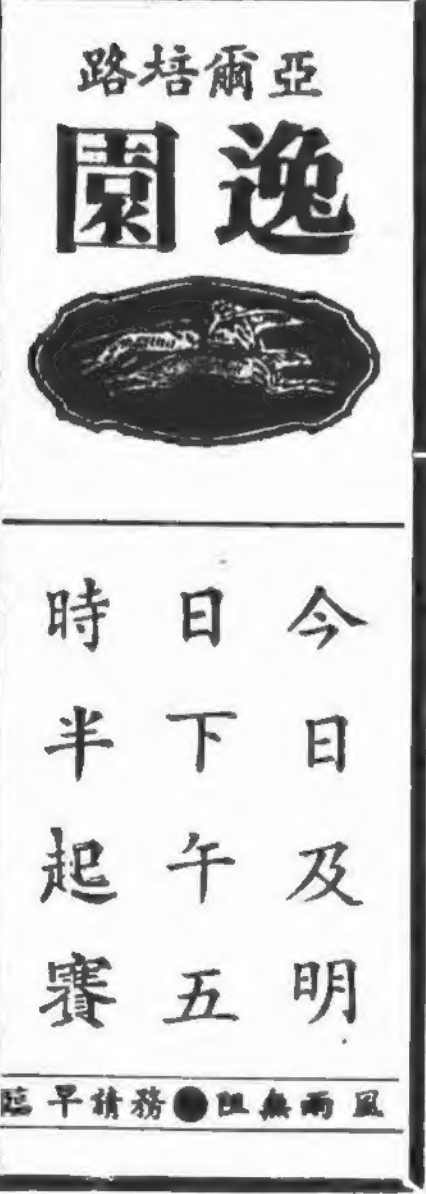 亞爾培路
逸園
今日及明
日下午五
時半起賽
風雨無阻●務請早臨